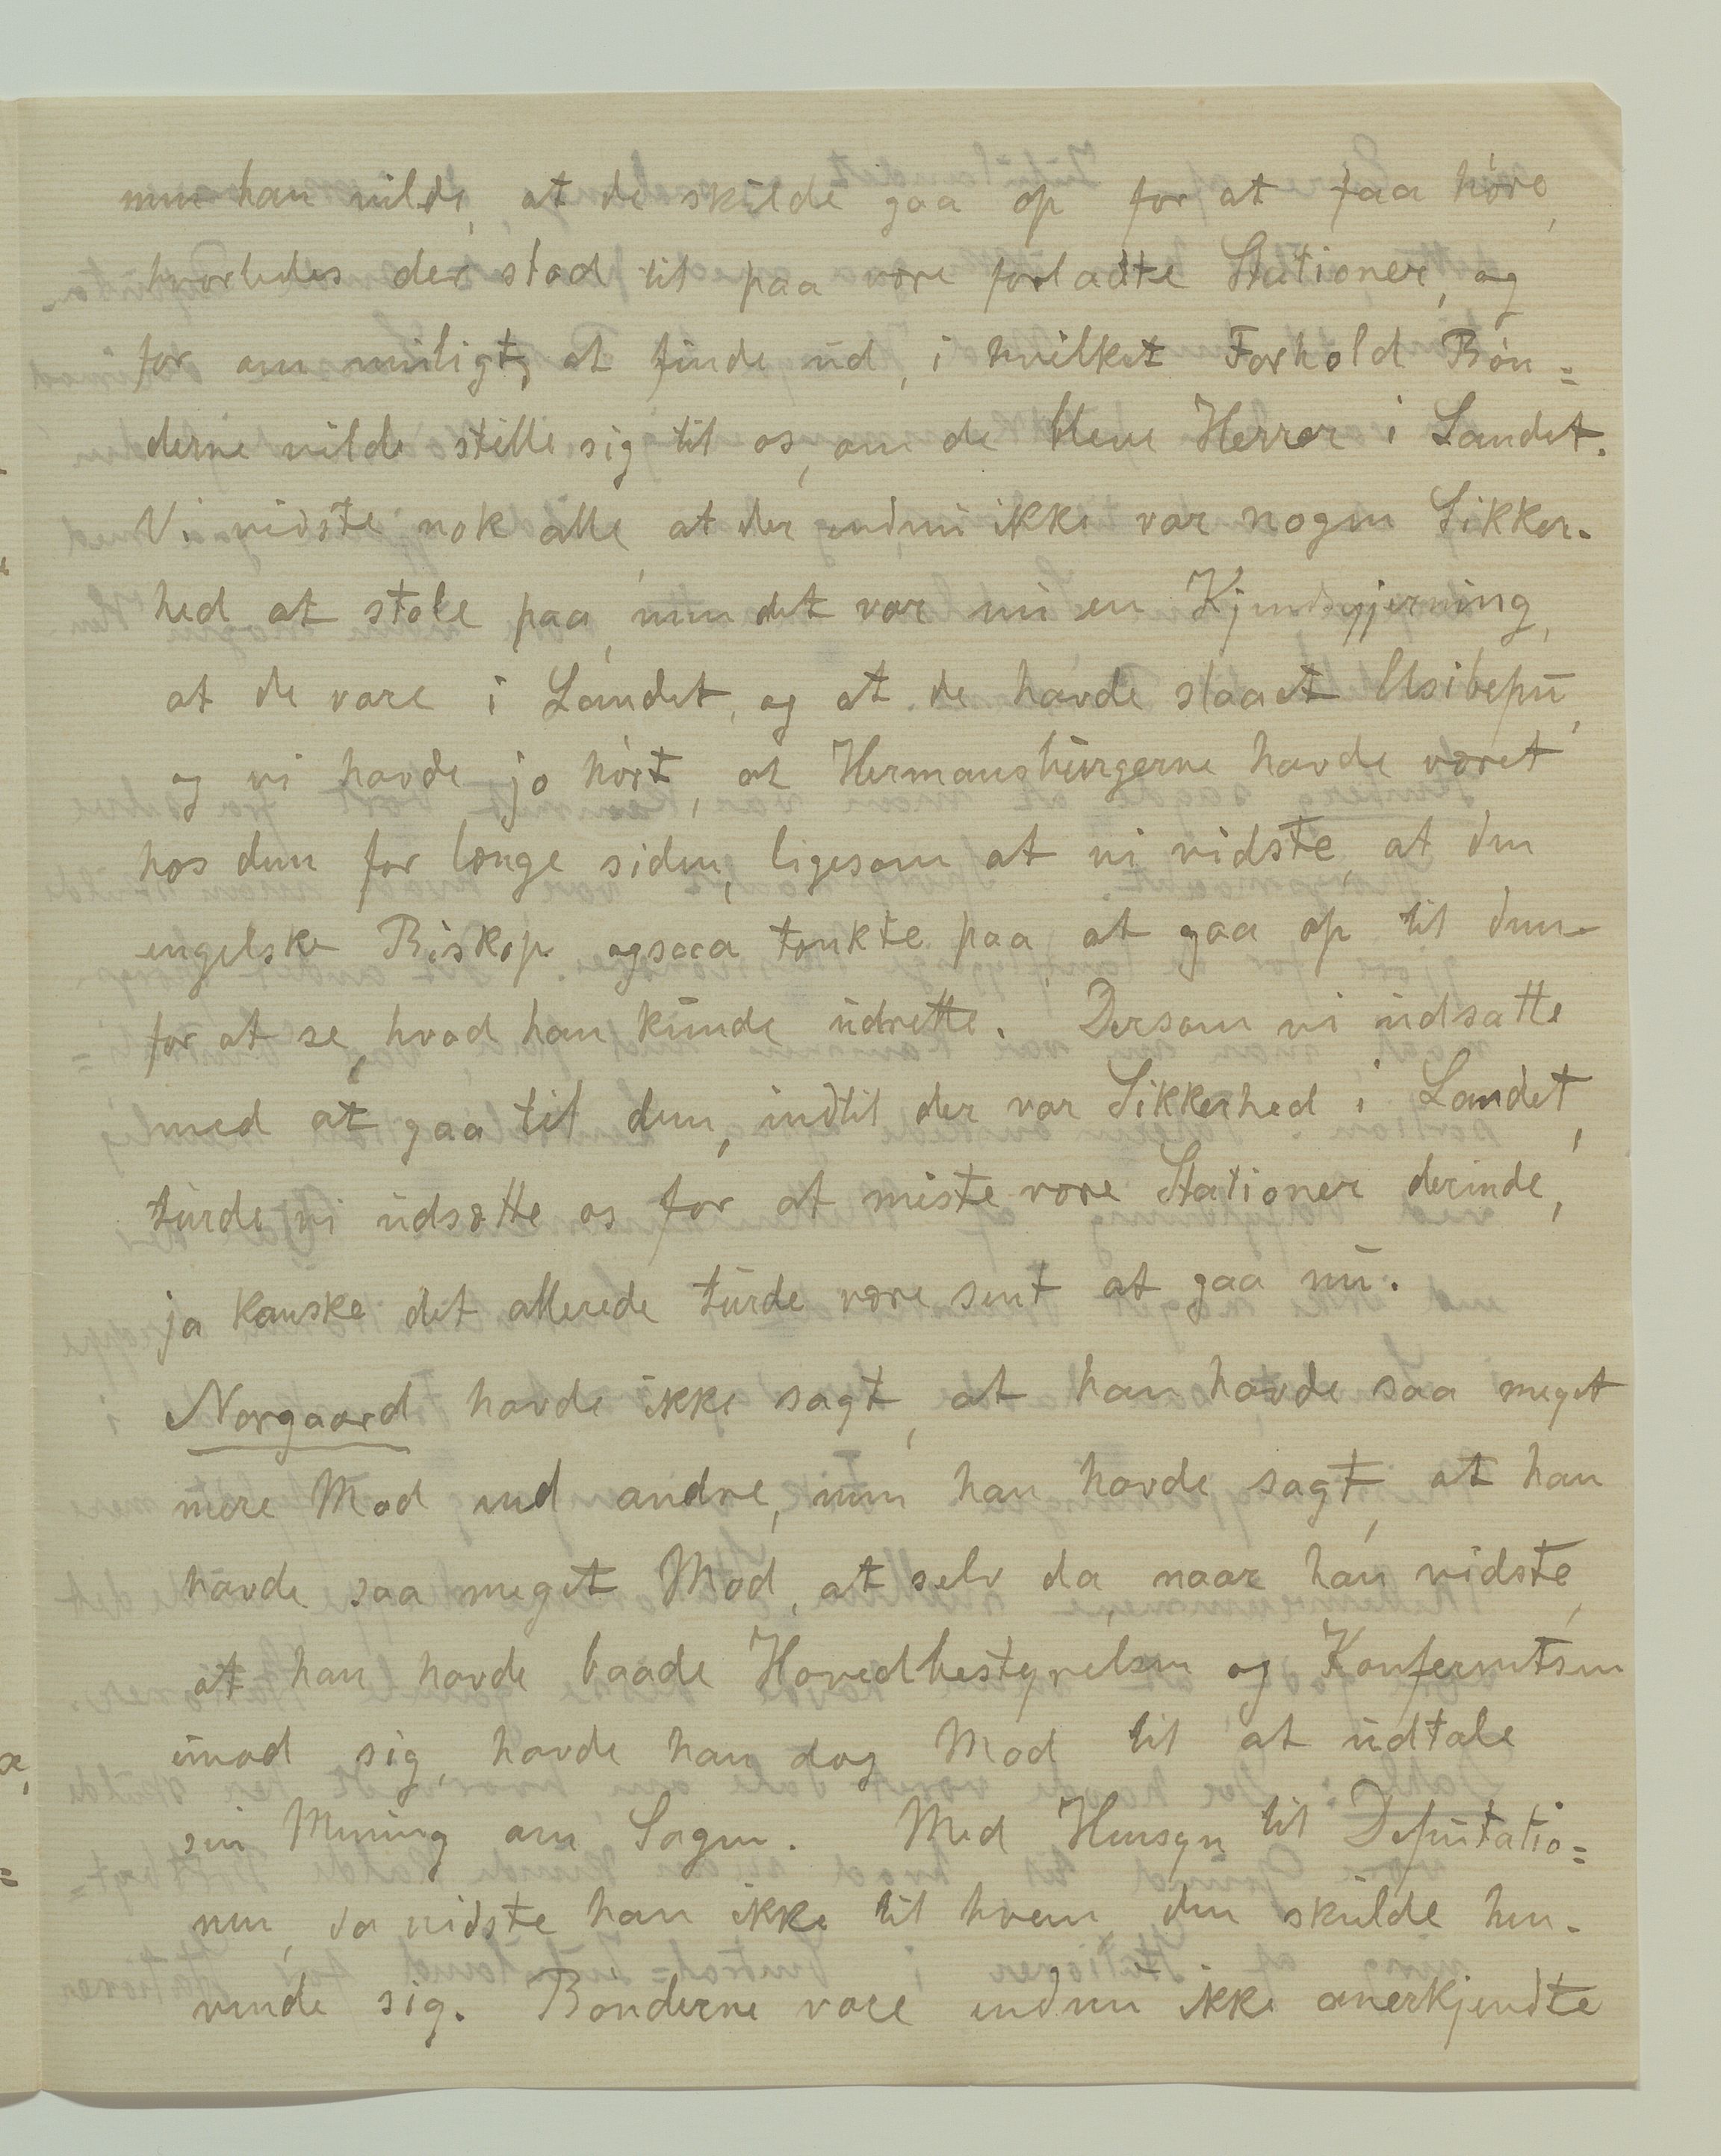 men han vilde, at de skulde gaa op for at faa høre,
hvorledes der stod til paa vore forladte Stationer, og
for om muligt, at finde ud, i hvilket Forhold Bøn=
derne vilde stille sig til os, om de bleve Herrer i Landet.
Vi vidste nok alle, at der endnu ikke var nogen Sikker-
hed at stole paa, men det var nu en Kjendsgjerning,
at de vare i Landet, og at de havde slaaet Usibepu,
og vi havde jo hørt, at Hermansburgerne havde været
hos dem for længe siden, ligesom at vi vidste, at den
engelske Biskop ogsaa tænkte paa, at gaa op til dem
for at se, hvad han kunde udrette. Dersom vi udsatte
med at gaa til dem, indtil der var Sikkerhed i Landet,
turde vi udsætte os for at miste vore Stationer derinde,
ja kanske det allerede turde være sent at gaa nu.
Norgaard havde ikke sagt, at han havde saa meget
mere Mod end andre, men han havde sagt, at han
havde saa meget Mod, at selv da, naar han vidste,
at han havde baade Hovedbestyrelsen og Konferentsen
imod sig, havde han dog Mod til at udtale
sin Mening om Sagen. Med Hensyn til Deputatio=
nen, da vidste han ikke til hvem den skulde hen-
vende sig. Bønderne vare endnu ikke anerkjendte